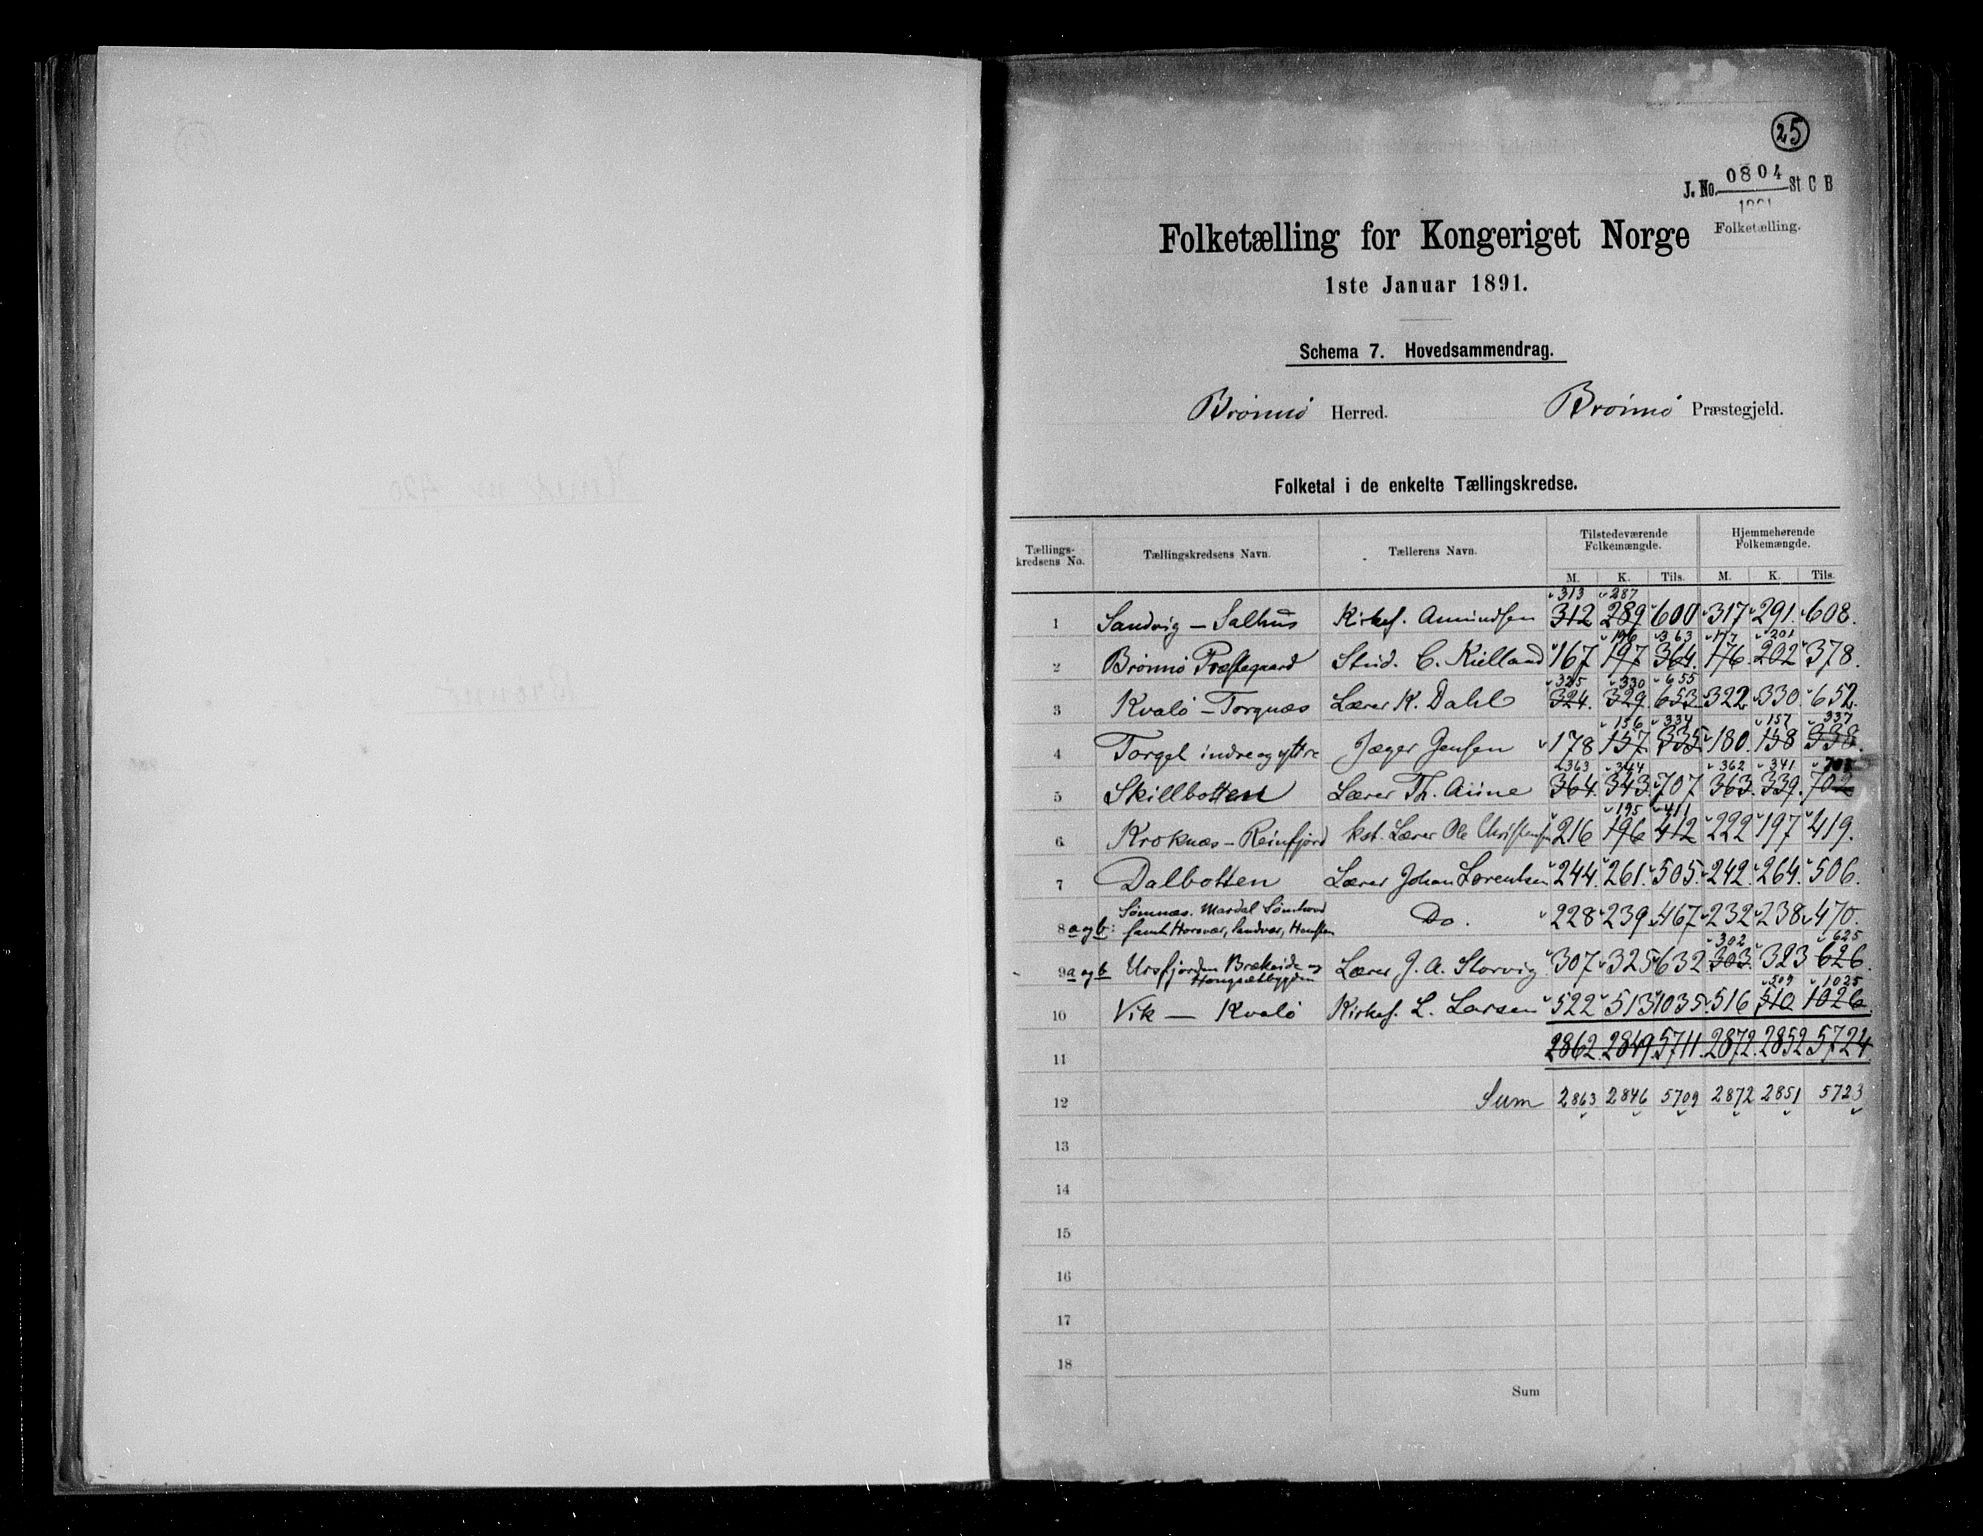 25
J. No. 0804 St C B
1891
Folketælling.
Folketælling for Kongeriget Norge
1ste Januar 1891.
Schema 7. Hovedsammendrag.
Brønnø Herred. Brønnø Præstegjeld.
Folketal i de enkelte Tællingskredse.
Tællings-kredsens No. Tællingskredsens Navn. Tællerens Navn. Tilstedeværende Folkemængde. Hjemmehørende Folkemængde.
M. K. Tils. M. K. Tils.
313 287
1 Sandvig — Salhus Kirkes. Amundsen 312 289 600 317 291 608.
196 363 177 201
2 Brønnø Præstegaard Stud. C. Kielland 167 197 364 176 202 378.
325 330 655
3 Kvalø — Torgnæs Lærer K. Dahl 324 329 653 322 330 652.
156 334 157 337
4 Torget indre og yttre Jæger Jensen 178 157 335 180 158 338.
363 344 362 341 703
5 Skillbotten Lærer Th. Aune 364 343 707 363 339 702
195 411
6 Kroknæs — Reinfjord kst. Lærer Ole Christensen 216 196 412 222 197 419.
7 Dalbotten Lærer Johan Lorentsen 244 261 505 242 264 506.
8 a og b: Sømnæs. Mardal Sømhovd
samt Horsvær, Sandvær, Do. 228 239 467 232 238 470.
302 625
9 a og b Ursfjorden Brækeide og Lærer J. A. Storvig 307 325 632 303 323 626
509 1025
10 Vik — Kvalø Kirkes. L. Larsen 522 513 1035 516 510 1026
11 2862 2849 5711 2872 2852 5724
12 Sum 2863 2846 5709 2872 2851 5723
13
14
15
16
17
18
Sum